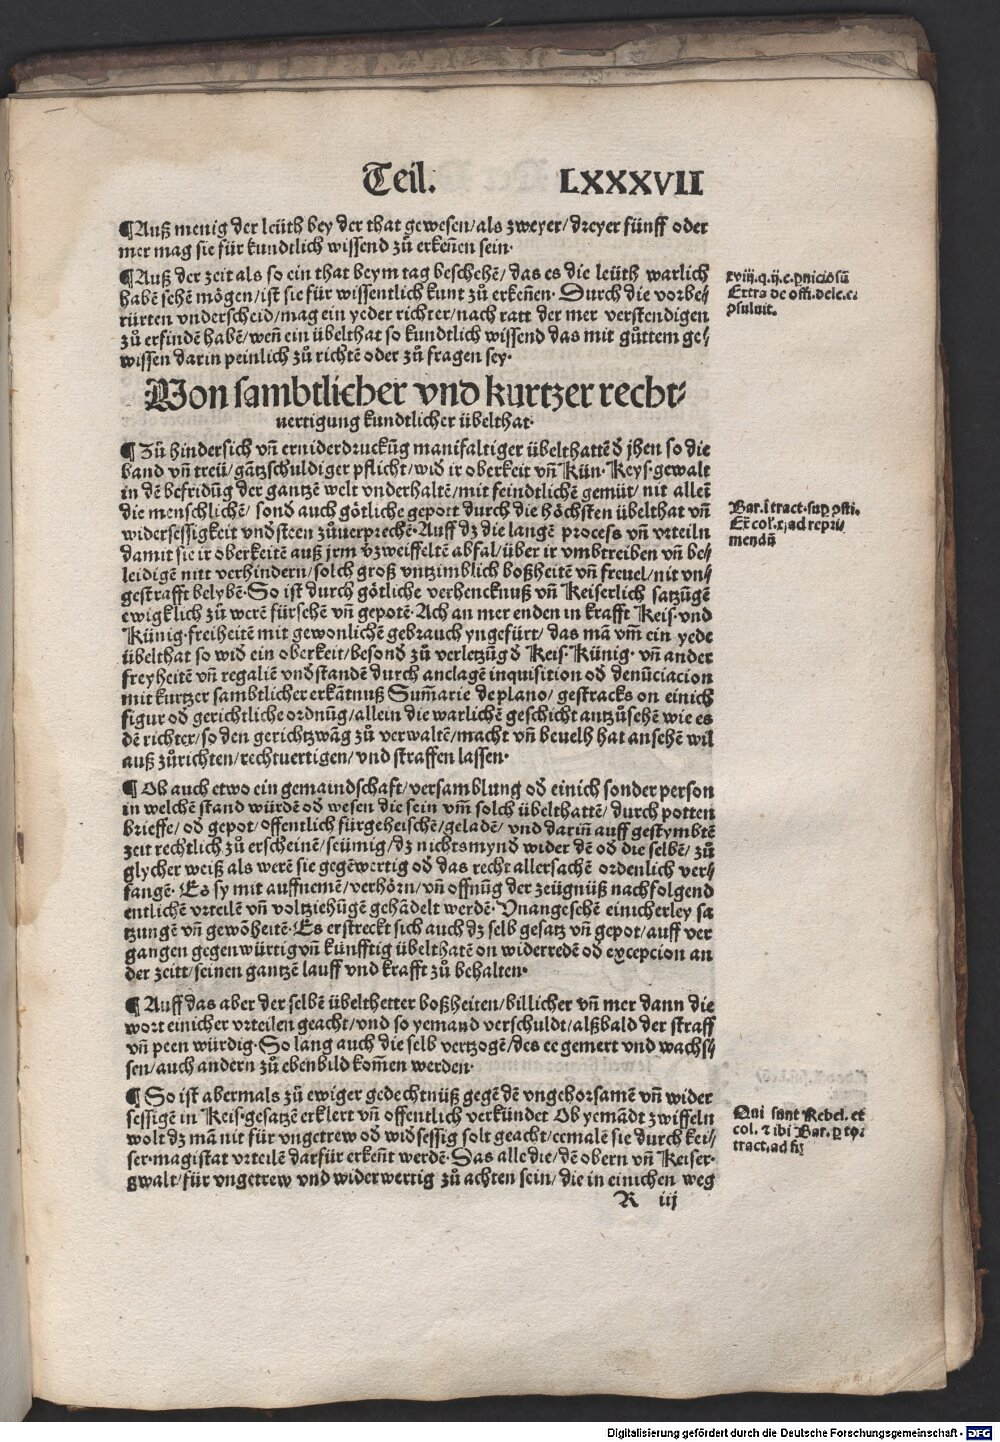 Teil. LXXXVII
¶Auß menig der leüth bey der that gewesen/als zweyer/dreyer fünff oder
mer mag sie für kundtlich wissend zů erkeñen sein·
¶Auß der zeit als so ein that beym tag beschehē/das es die leüth warlich
habē sehē mögen/ist sie für wissentlich kunt zů erkeñen· Durch die vorbe⸗
rürten vnderscheid/mag ein yeder richter/nach ratt der mer verstendigen
zů erfindē habē/weñ ein übelthat so kundtlich wissend das mit gůttem ge⸗
wissen darin peinlich zů richtē oder zů fragen sey·
xviij.q.ij.c.ꝑniciosū
Extra de offi.dele.c.
Von sambtlicher vnd kurtzer recht⸗
uertigung kundtlicher übelthat·
¶Zů hindersich vñ erniderdruckūg manifaltiger übelthattē đ jhen so die
band vñ treü/gātzschuldiger pflicht/wiđ ir oberkeit vñ Kün· Keys·gewalt
in dē befridūg der gantzē welt vnderhaltē/mit feindtlichē gemüt/ nit alleī
die menschlichē/ sonđ auch götliche gepott durch die höchsten übelthat vñ
widersessigkeit vndsteen zůuerprechē·Auff dz die langē process vñ vrteiln
damit sie ir oberkeitē auß jrm v̄zweiffeltē abfal/über ir vmbtreiben vñ be⸗
leidigē nitt verhindern/solch groß vntzimblich boßheitē vñ freuel/nit vn⸗
gestrafft belybē·So ist durch götliche verhencknuß vñ Keiserlich satzūgē
ewigklich zů werē fürsehē vñ gepotē·Ach an mer enden in krafft Keis·vnd
Künig·freiheitē mit gewonlichē gebrauch yngefürt/ das mā vm̄ ein yede
übelthat so wiđ ein oberkeit/besonđ zů verletzūg đ Keis·Künig· vñ ander
freyheitē vñ regaliē vndstandē durch anclagē inquisition ođ denūciacion
mit kurtzer sambtlicher erkātnuß Sum̄arie de plano/ gestracks on einich
figur ođ gerichtliche ordnūg/allein die warlichē geschicht antzůsehē wie es
dē richter/so den gerichtzwāg zů verwaltē/macht vñ beuelh hat ansehē wil
auß zůrichten/rechtuertigen/vnd straffen lassen·
Bar.ī tract.suꝑ ꝯsti.
Ex̄ col.x.ad repri⸗
mendū
¶Ob auch etwo ein gemaindschaft/versamblung ođ einich sonder person
in welchē stand würdē ođ wesen die sein vm̄ solch übelthattē/durch potten
brieffe/ ođ gepot/offentlich fürgeheischē/geladē/ vnd dariñ auff gestymbtē
zeit rechtlich zů erscheinē/seümig/dz nichtsmynd wider dē ođ die selbē/ zů
glycher weiß als werē sie gegēwertig ođ das recht allersachē ordenlich ver⸗
fangē· Es sy mit auffnemē/verhörn/vñ offnūg der zeügnüß nachfolgend
entlichē vrteilē vñ voltziehūgē gehādelt werdē·Vnangesehē einicherley sa
tzungē vñ gewōheitē·Es erstreckt sich auch dz selb gesatz vñ gepot/auff ver
gangen gegenwürtig vñ künfftig übelthatē on widerredē ođ excepcion an
der zeitt/seinen gantzē lauff vnd krafft zů behalten·
¶Auff das aber der selbē übelthetter boßheiten/billicher vñ mer dann die
wort einicher vrteilen geacht/vnd so yemand verschuldt/alßbald der straff
vñ peen würdig·So lang auch die selb vertzogē/des ee gemert vnd wachs⸗
sen/auch andern zů ebenbild kom̄en werden·
¶So ist abermals zů ewiger gedechtnüß gegē dē vngehorsamē vñ wider
sessigē in Keis·gesatzē erklert vñ offentlich verkündet Ob yemādt zwiffeln
wolt dz mā nit für vngetrew ođ wiđsessig solt geacht/eemalē sie durch kei⸗
ser·magistat vrteilē darfür erkeñt werdē·Das alle die/dē obern vñ Keiser·
gwalt/für vngetrew vnd widerwertig zů achten sein/die in einichen weg
Qui sunt Rebel. et
col. ⁊ ibi Bar. ꝑ to.
tract.ad
R iij
Digitalisierung gefördert durch die Deutsche Forschungsgemeinschaft - DFG